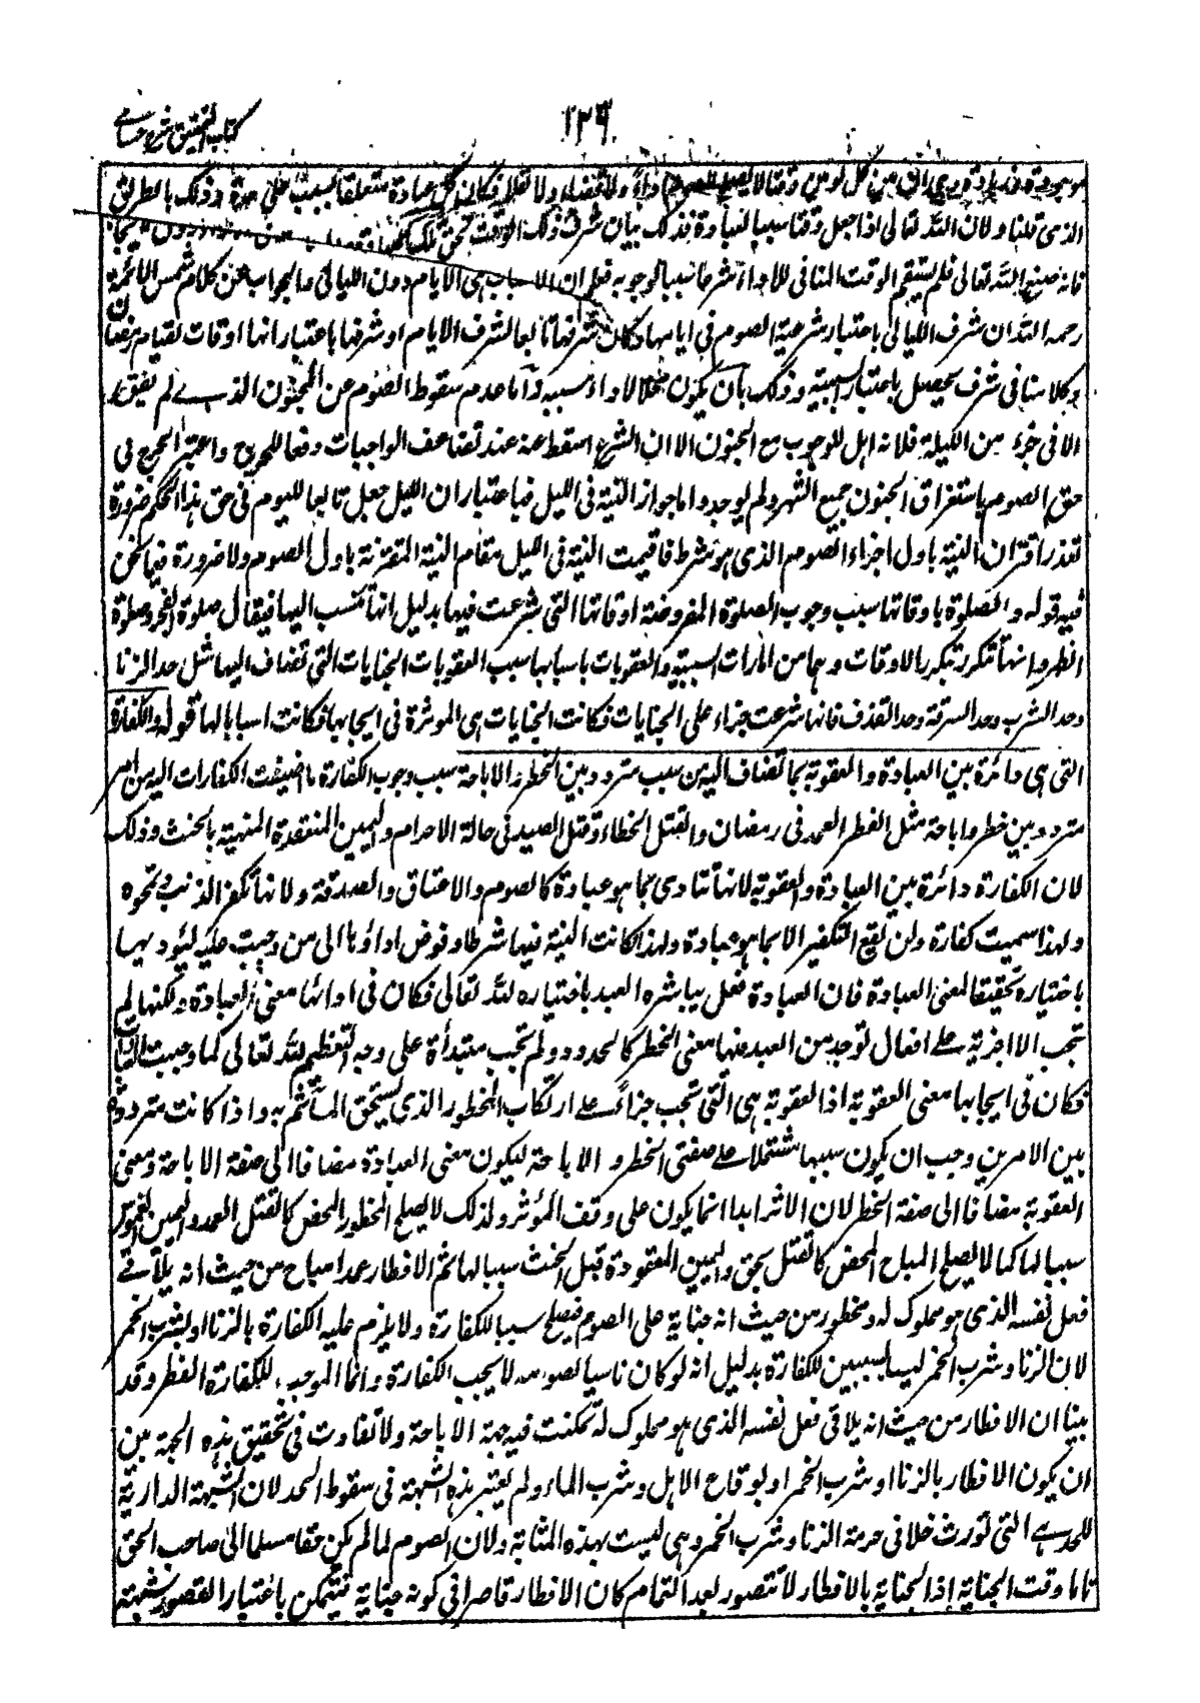 كتاب التحقيق شرح حسامي
١٢٦
الذي قلنا ولان الله تعالى اذا جعل وقتا سببا لعبادة فذلك بيان شرف ذلك الوقت
فانه صنع الله تعالى فلم يستقم الوقت المنافي للاداء شرعا سببا لوجوبه فعلم ان الاسباب هي الايام دون الليالي والجواب عن كلام شمس الائمة
رحمه الله ان شرف الليالي باعتبار شرعية الصوم في ايامها وكان شرفها تابعا لشرف الايام او شرفها باعتبار انها اوقات لقيام رمضان
وكلامنا في شرف يحصل باعتبار السببية وذلك بان يكون محلا لاداء مسببه واما عدم سقوط الصوم عن المجنون الذي لم يفق
الا في جزء من الليلة فلانه اهل للوجوب مع الجنون الا ان الشرع اسقط عنه عند تضاعف الواجبات دفعا للحرج واعتبر الحرج في
حق الصوم باستغراق الجنون جميع الشهر ولم يوجد واما جواز النية في الليل فباعتبار ان الليل جعل تابعا لليوم في حق هذا الحكم ضرورة
تعذر اقتران النية باول اجزاء الصوم الذي هو شرط فاقيمت النية في الليل مقام النية المقترنة باول الصوم ولا ضرورة فيما نحن
فيه قوله والصلوة باوقاتها سبب وجوب الصلوة المفروضة اوقاتها التي شرعت فيها بدليل انها تنسب اليها فيقال صلوة الفجر وصلوة
الظهر وانها تتكرر بتكرر الاوقات وهما من امارات السببية والعقوبات باسبابها سبب العقوبات الجنايات التي تضاف اليها مثل حد الزنا
وحد الشرب وحد السرقة وحد القذف فانها شرعت جزاء على الجنايات فكانت الجنايات هي الموثرة في ايجابها فكانت اسبابا لها قوله والكفارة
التي هي دائرة بين العبادة والعقوبة بما تضاف اليه من سبب متردد بين الحظر والاباحة سبب وجوب الكفارة ما اضيفت الكفارات اليه من امر
متردد بين حظر واباحة مثل الفطر العمد في رمضان والقتل الخطاء وقتل الصيد في حالة الاحرام واليمين المنعقدة المنتهية بالحنث وذلك
لان الكفارة دائرة بين العبادة والعقوبة لانها تتادى بما هو عبادة كالصوم والاعتاق والصدقة ولانها تكفر الذنب وتمحوه
ولهذا سميت كفارة ولن يقع التكفير الا بما هو عبادة ولهذا كانت النية فيها شرطا وفوض اداؤها الى من وجبت عليه ليؤديها
باختياره تحقيقا لمعنى العبادة فان العبادة فعل يباشره العبد باختياره لله تعالى فكان في ادائها معنى العبادة ولكنها لم
تجب الا اجزية على افعال توجد من العبد فيها معنى الحظر كالحدود ولم تجب مبتدأة على وجه التعظيم لله تعالى كما وجبت
فكان في ايجابها معنى العقوبة اذ العقوبة هي التي تجب جزاءً على ارتكاب المحظور الذي يستحق المأثم به واذا كانت مترددة
بين الامرين وجب ان يكون سببها مشتملا على صفتي الحظر والاباحة ليكون معنى العبادة مضافا الى صفة الاباحة ومعنى
العقوبة مضافا الى صفة الحظر لان الاثر ابدا انما يكون على وفق المؤثر ولذلك لا يصلح المحظور المحض كالقتل العمد واليمين الغموس
سببا لها كما لا يصلح المباح المحض كالقتل بحق واليمين المعقودة قبل الحنث سببا لها ثم الافطار عمدا مباح من حيث انه يلاقي
فعل نفسه الذي هو مملوك له ومحظور من حيث انه جناية على الصوم فيصلح سببا للكفارة ولا يلزم عليه الكفارة بالزنا او بشرب الخمر
لان الزنا وشرب الخمر ليسا بسببين للكفارة بدليل انه لو كان ناسيا لصومه لا يجب الكفارة وانما الموجب للكفارة الفطر وقد
بينا ان الافطار من حيث انه يلاقي فعل نفسه الذي هو مملوك له تمكنت فيه جهة الاباحة ولا تفاوت في تحقيق هذه الجهة بين
ان يكون الافطار بالزنا او شرب الخمر او بوقاع الاهل وشرب الماء ولم يعتبر هذه الشبهة في سقوط الحد لان الشبهة الدارئة
للحد هي التي تورث خللا في حرمة الزنا وشرب الخمر وهي ليست بهذه المثابة ولان الصوم لما لم يكن حقا مسلما الى صاحب الحق
تاما وقت الجناية اذ الجناية بالافطار لا تتصور بعد التمام كان الافطار قاصرا في كونه جناية فيتمكن باعتبار القصور شبهة